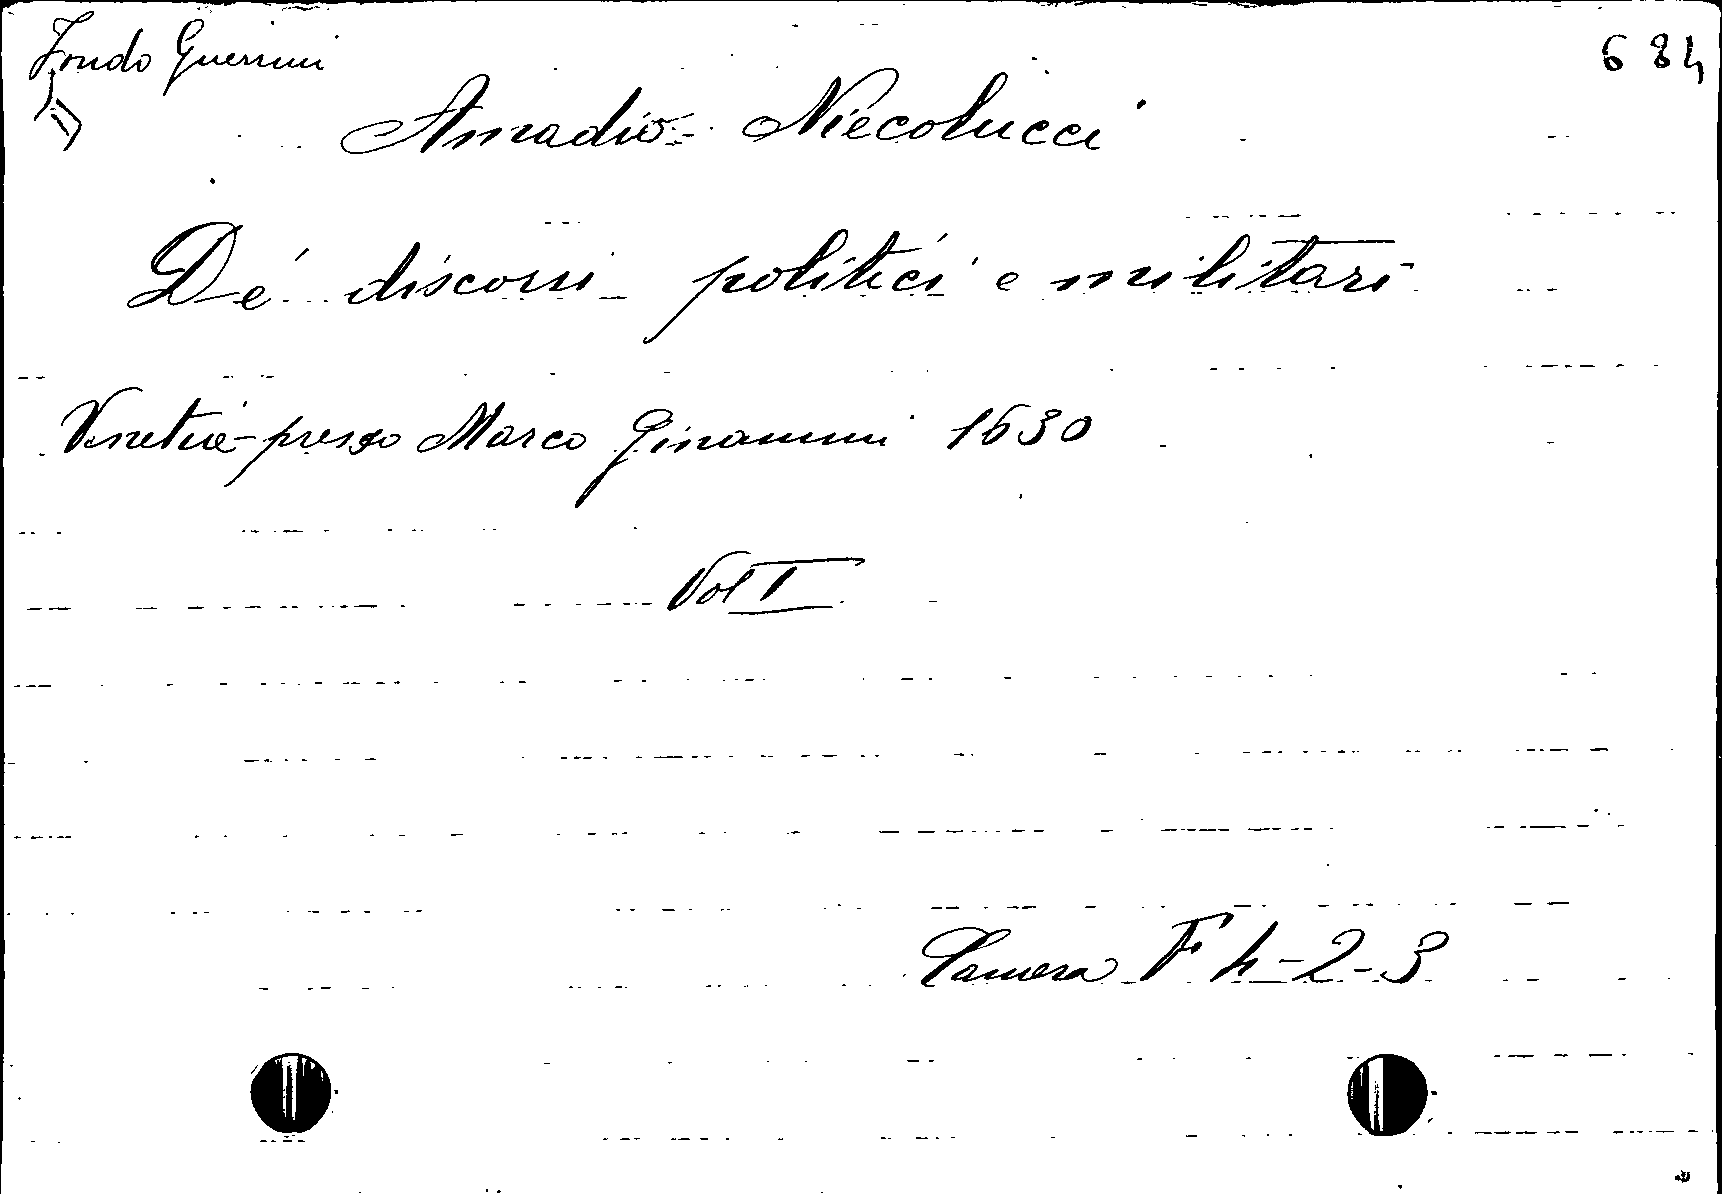 Fondo Guerrini
684
Amadio Niecolucci
De' discorsi politici e militari
Venetia - presso Marco Ginammi 1630
Vol I
Camera F h-2-3